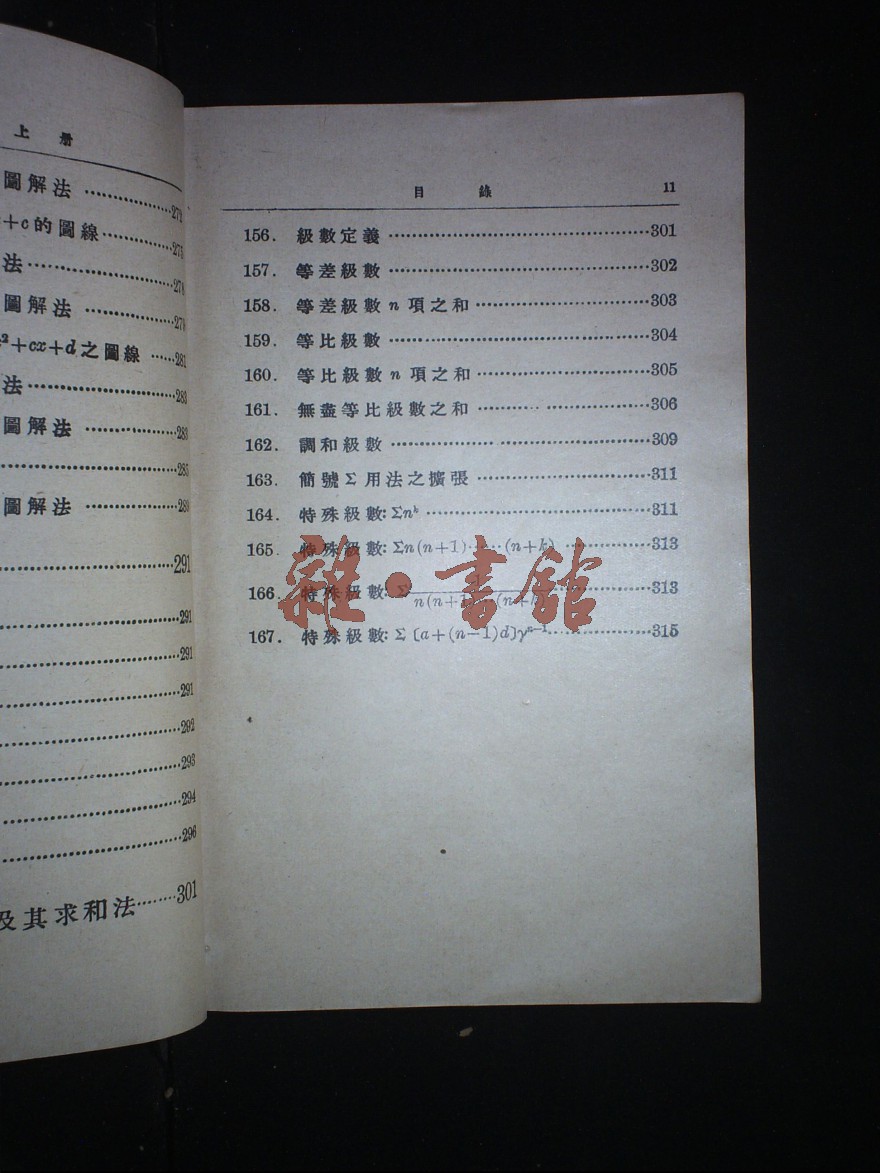 上 册
圖解法 ……………272
+c的圖線……………275
法……………278
圖解法 ……………279
²+cx+d之圖線 ……281
法……………283
圖解法 ……………283
……………285
圖解法 ……………289
……………291
……………291
……………291
……………291
……………292
……………293
……………294
……………296
及其求和法………301
目 錄 11
156. 級數定義 ……………301
157. 等差級數 ……………302
158. 等差級數 n 項之和 ……………303
159. 等比級數 ……………304
160. 等比級數 n 項之和 ……………305
161. 無盡等比級數之和 ……………306
162. 調和級數 ……………309
163. 簡號 Σ 用法之擴張 ……………311
164. 特殊級數: Σnᵏ ……………311
165. 特殊級數: Σn(n+1)……(n+k) ……………313
166. 特殊級數: Σ n(n+1)(n+k) ……………313
167. 特殊級數: Σ〔a+(n−1)d〕γⁿ⁻¹ ……………315
雜·書館